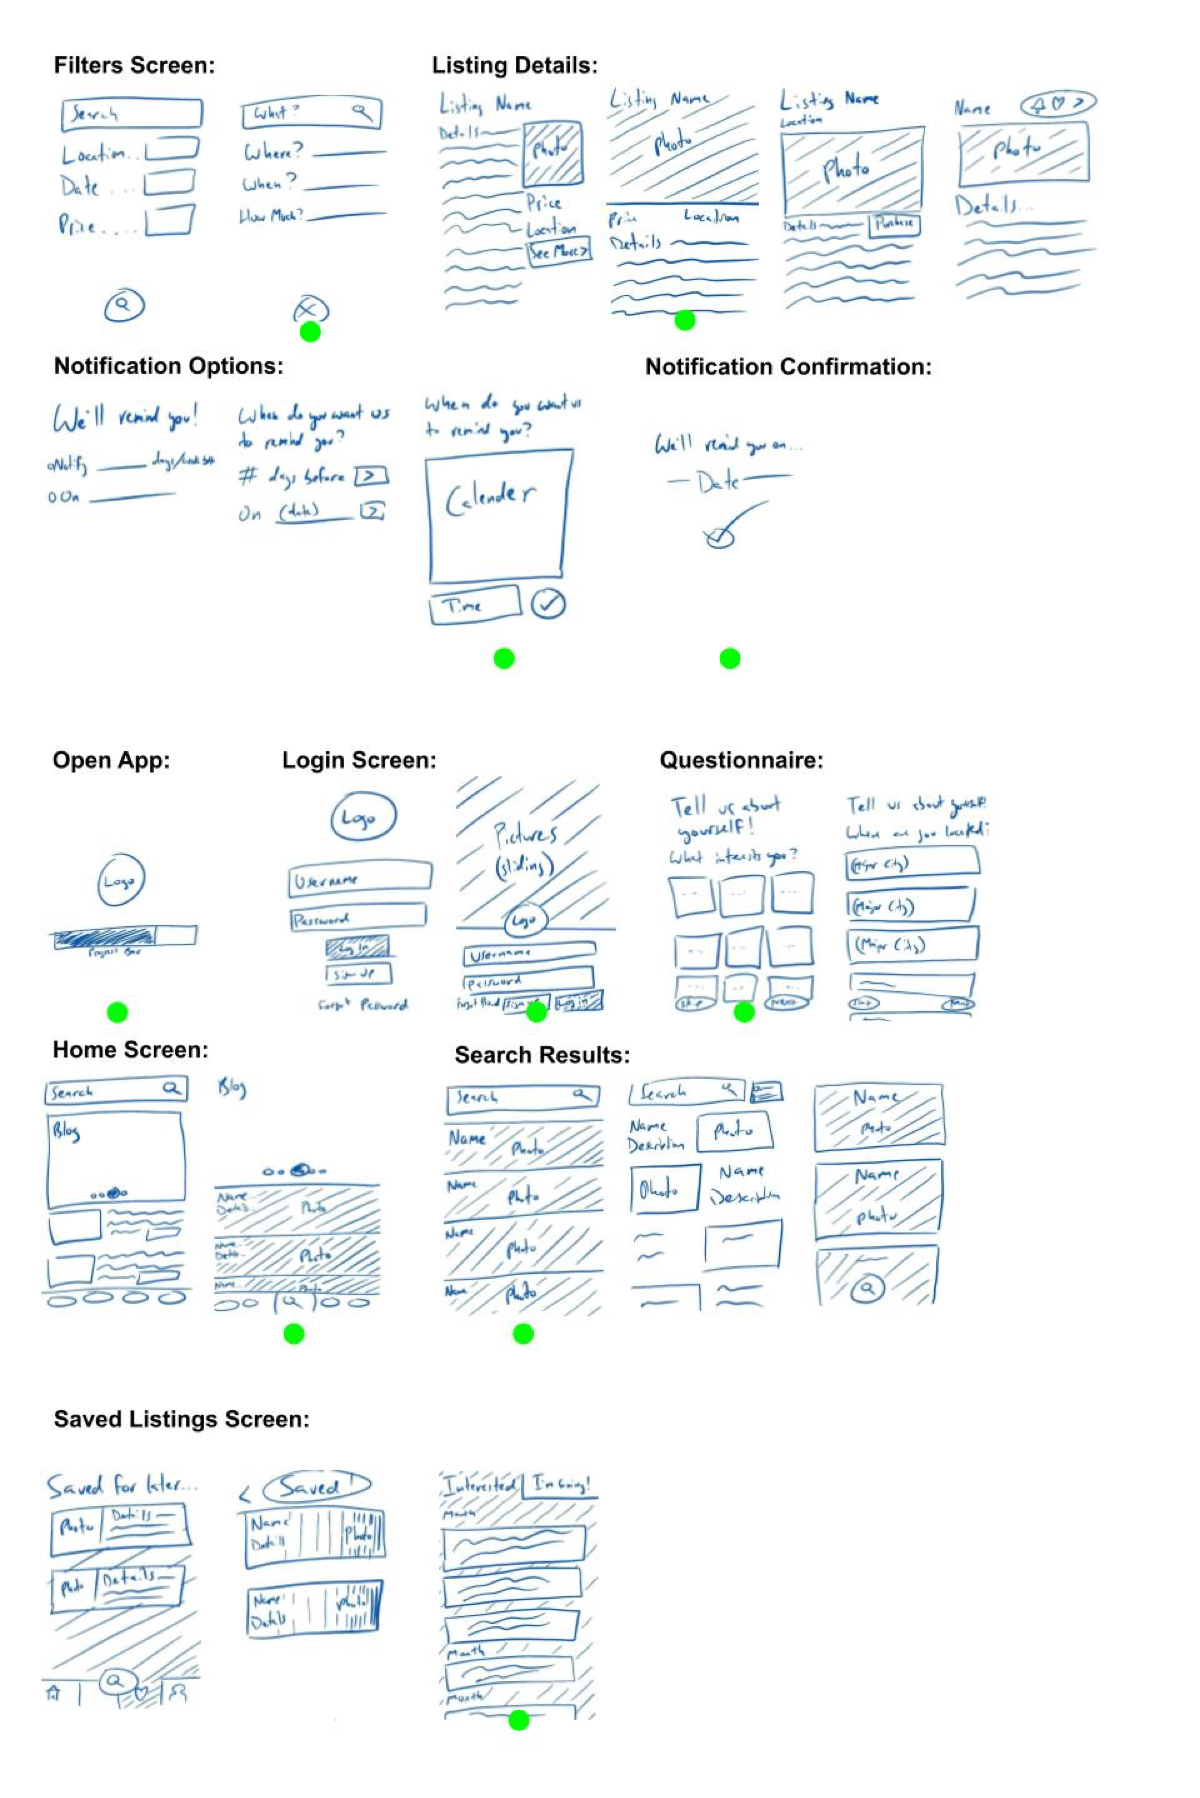 Filters Screen:
Search
Location..
Date ...
Price.....
What?
Where?
When?
How Much?
Listing Details:
Listing Name
Details
Photo
Price
Location
See More>
Listing Name
Photo
Price Location
Details
Listing Name
Location
Photo
Details Purchase
Name
Photo
Details...
Notification Options:
We'll remind you!
Notify days/
On
When do you want us
to remind you?
# days before >
On (date) >
When do you want us
to remind you?
Calender
Time
Notification Confirmation:
We'll remind you on...
- Date
Open App:
Logo
Progress Bar
Login Screen:
Logo
Username
Password
Log In
Sign Up
Forgot Password
Pictures
(sliding)
Logo
Username
Password
Sign up Log in
Questionnaire:
Tell us about
yourself!
What interests you?
Skip Next
Tell us about yourself!
Where are you located?
(Major City)
(Major City)
(Major City)
Skip Next
Home Screen:
Search
Blog
Blog
Name
Details
Photo
Name
Details
Photo
Name
Photo
Search Results:
Search
Name Photo
Name
Photo
Name
Photo
Name Photo
Search
Name
Description
Photo
Photo
Name
Description
Name
Photo
Name
Photo
Saved Listings Screen:
Saved for later...
Photo Details
Photo Details
< Saved
Name
Details
Photo
Name
Details
Photo
Interested I'm Going!
Month
Month
Month